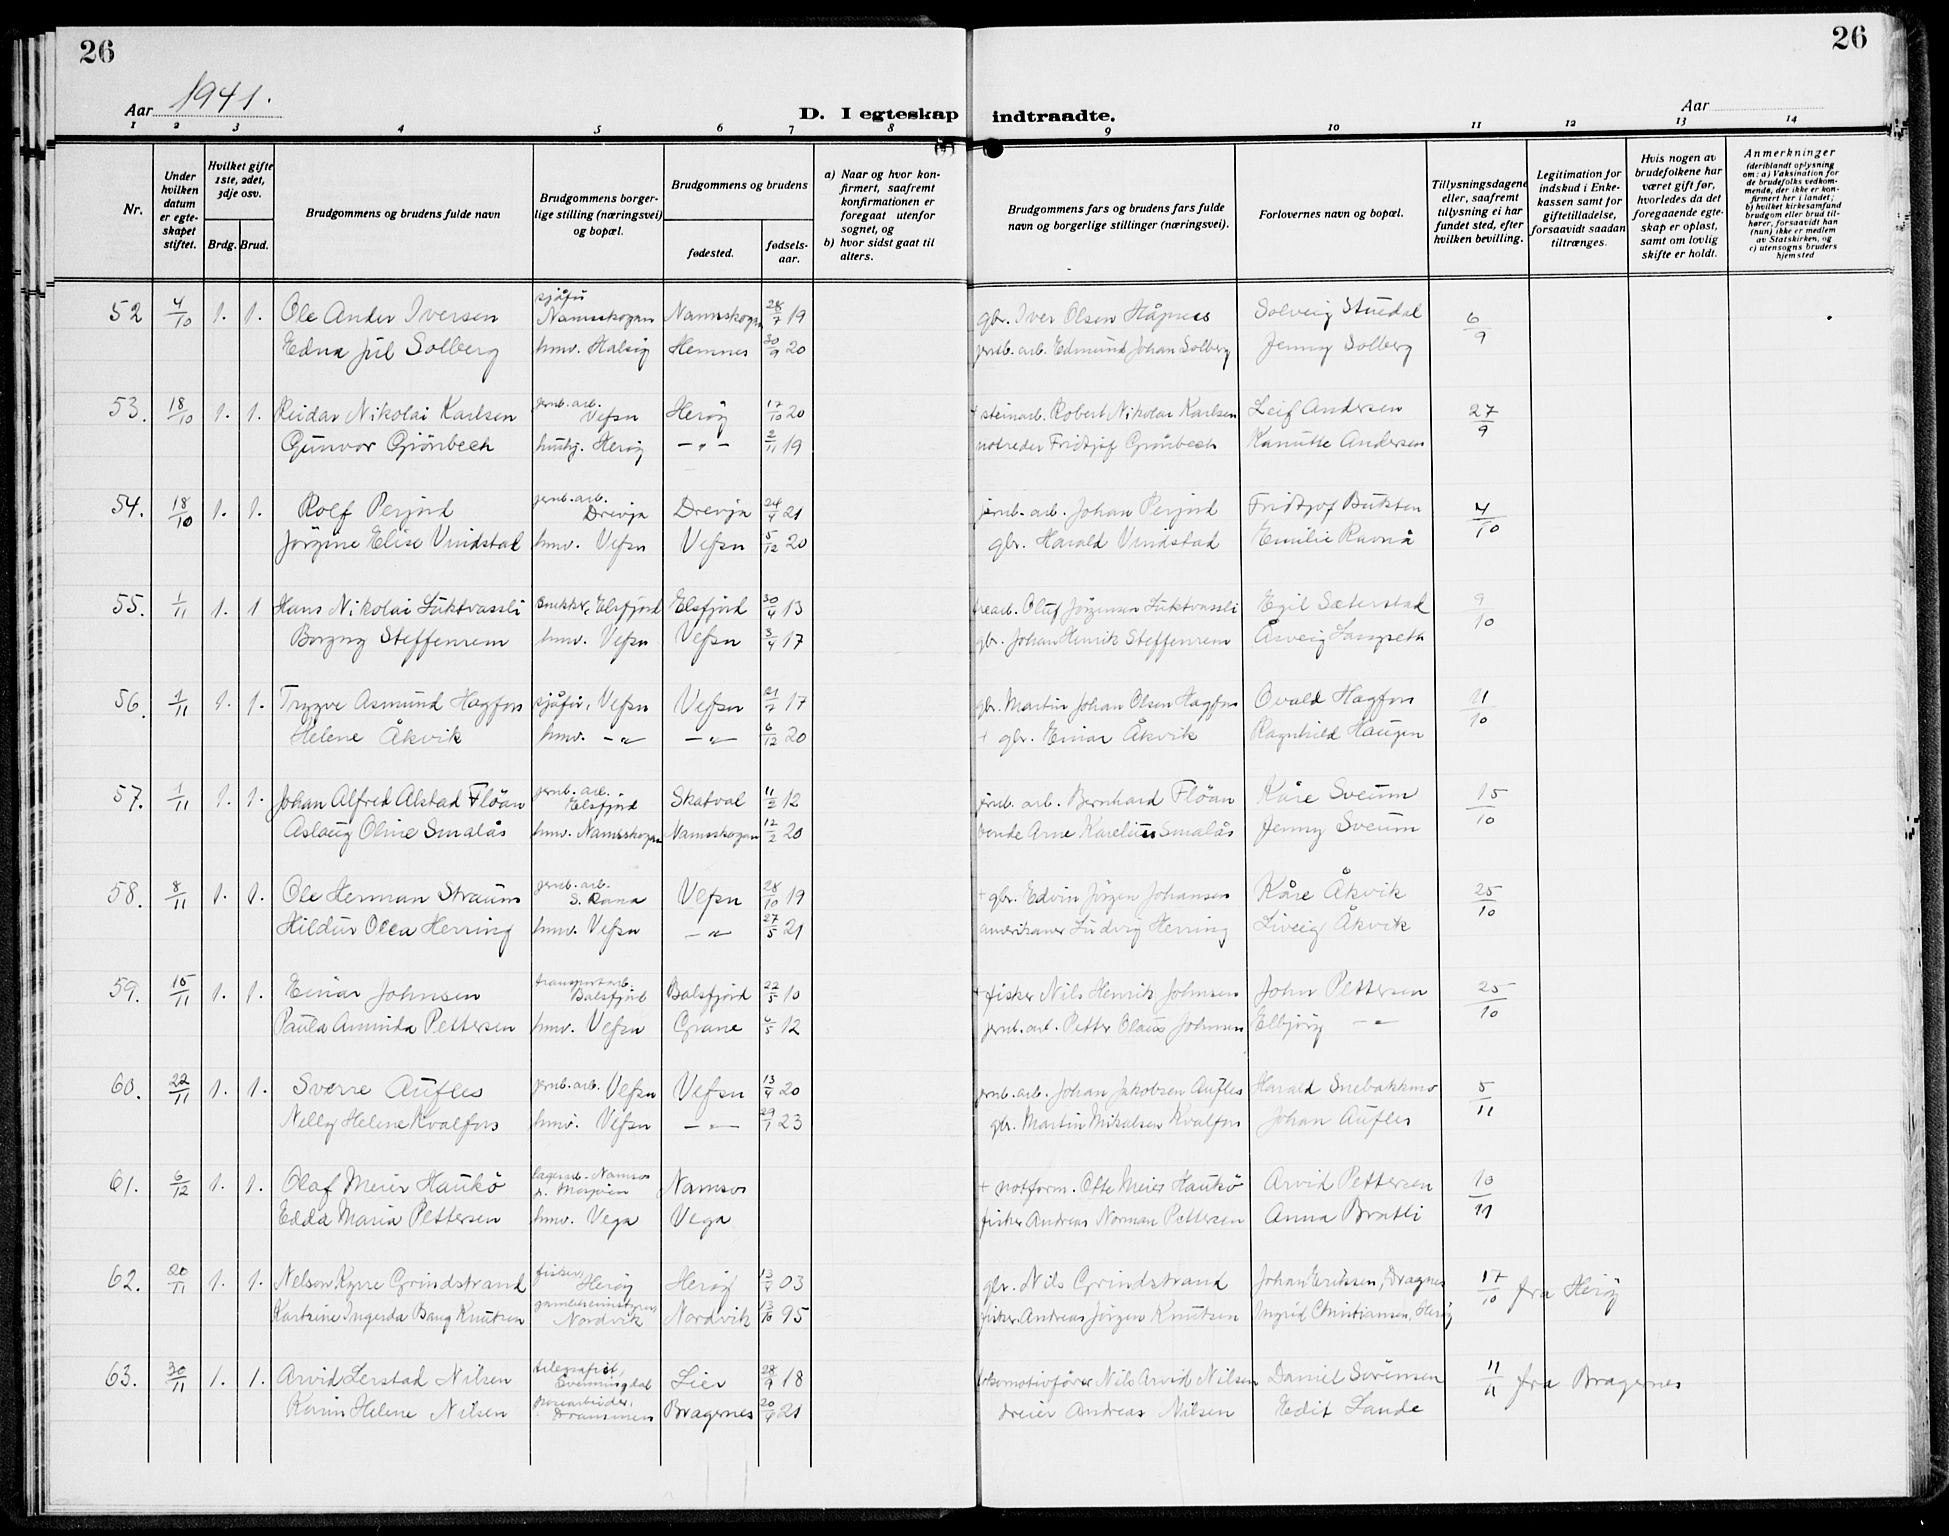 26
26
Aar 1941.
D. I egteskap indtraadte.
Aar
1 2 3 4 5 6 7 8 9 10 11 12 13 14
Nr.
Under hvilken datum er egte-skapet stiftet.
Hvilket gifte 1ste, 2det, 3dje osv.
Brdg. Brud.
Brudgommens og brudens fulde navn
Brudgommens borger-lige stilling (næringsvei) og bopæl.
Brudgommens og brudens
fødested.
fødsels-aar.
a) Naar og hvor kon-firmert, saafremt konfirmationen er foregaat utenfor sognet, og
b) hvor sidst gaat til alters.
Brudgommens fars og brudens fars fulde navn og borgerlige stillinger (næringsvei).
Forlovernes navn og bopæl.
Tillysningsdagene eller, saafremt tillysning ei har fundet sted, efter hvilken bevilling.
Legitimation for indskud i Enke-kassen samt for giftetilladelse, forsaavidt saadan tiltrænges.
Hvis nogen av brudefolkene har været gift før, hvorledes da det foregaaende egte-skap er opløst, samt om lovlig skifte er holdt.
Anmerkninger (deriblandt oplysning om: a) Vaksination for de brudefolks vedkom-mende, der ikke er kon-firmert her i landet; b) hvilket kirkesamfund brudgom eller brud til-hører, forsaavidt han (hun) ikke er medlem av Statskirken, og c) utensogns bruders hjemsted
52 4/10 1. 1. Ole Ander Iversen sjåfør Namsskogan Namsskogan 28/7 19 gbr. Iver Olsen Håpnes Solveig Stuedal 6/9
Edna Jul Solberg hmv. Halsøy Hemnes 30/9 20 jernb. arb. Edmund Johan Solberg Jenny Solberg
53. 18/10 1. 1. Reidar Nikolai Karlsen jernb. arb. Vefsn Herøy 17/10 20 + steinarb. Robert Nikolai Karlsen Leif Andersen 27/9
Gunvor Grönbech hushj. Herøy — " — 2/11 19 notreder Fridtjof Grönbech Kanutte Andersen
54. 18/10 1. 1. Rolf Perjord jernb. arb. Drevja Drevja 24/4 21 jernb. arb. Johan Perjord Fridtjof Buksten 4/10
Jörgine Elise Vindstad hmv. Vefsn Vefsn 5/12 20 gbr. Harald Vindstad Emilie Ravnå
55. 1/11 1. 1 Hans Nikolai Luktvassli Elsfjord Elsfjord 30/4 13 trearb. Oluf Jörgensen Luktvassli Egil Sæterstad 9/10
Borgny Steffenrem hmv. Vefsn Vefsn 3/4 17 gbr. Johan Henrik Steffenrem Åsveig Langseth
56. 1/11 1. 1. Trygve Asmund Hagfors sjåfør, Vefsn Vefsn 21/7 17 gbr. Martin Johan Olsen Hagfors Ovald Hagfors 11/10
Helene Åkvik hmv. — " — — " — 6/12 20 + gbr. Einar Åkvik Ragnhild Haugen
57. 1/11 1. 1. Johan Alfred Alstad Flöan jernb. arb. Elsfjord Skatval 11/2 12 jernb. arb. Bernhard Flöan Kåre Sveum 15/10
Aslaug Oline Smalås hmv. Namsskogan Namsskogan 12/2 20 bonde Arne Karelius Smalås Jenny Sveum
58. 8/11 1. 1. Ole Herman Straum jernb. arb. S. Rana Vefsn 28/10 19 + gbr. Edvin Jörgen Johansen Kåre Åkvik 25/10
Hildur Olea Herring hmv. Vefsn — " — 27/5 21 amerikaner Ludvig Herring Liveig Åkvik
59. 15/11 1. 1. Einar Johnsen transportarb. Balsfjord Balsfjord 22/5 10 + fisker Nils Henrik Johnsen John Pettersen 25/10
Paula Aminda Pettersen hmv. Vefsn Grane 6/5 12 jernb. arb. Petter Olaus Johnsen Elbjörg — " —
60. 22/11 1. 1. Sverre Aufles jernb. arb. Vefsn Vefsn 13/4 20 jernb. arb. Johan Jakobsen Aufles Harald Snebakkmo 5/11
Nelly Helene Kvalfors hmv. Vefsn — " — 29/1 23 gbr. Martin Mikalsen Kvalfors Johan Aufles
61. 6/12 1. 1. Olaf Meier Haukö lagerarb. Namsos p. Mosjøen Namsos + notform. Otto Meier Haukö Arvid Pettersen 10/11
Edda Maria Pettersen hmv. Vega Vega fisker Andreas Norman Pettersen Anna Bratli
62. 20/11 1. 1. Nelson Kyrre Grindstrand fisker, Herøy Herøy 13/4 03 gbr. Nils Grindstrand Johan Eriksen, Dragnes 17/10 fra Herøy
Kartzine Ingerda Bang Knutsen gamlehjemsstyrer, Nordvik Nordvik 13/10 95 fisker Andreas Jörgen Knutsen Ingrid Christiansen, Herøy
63. 30/11 1. 1. Arvid Lerstad Nilsen telegrafist, Svenningdal Lier 28/9 18 lokomotivfører Nils Arvid Nilsen Daniel Sörensen 11/11 fra Bragernes
Karin Helene Nilsen Drammen Bragernes 20/4 21 dreier Andreas Nilsen Edit Lande